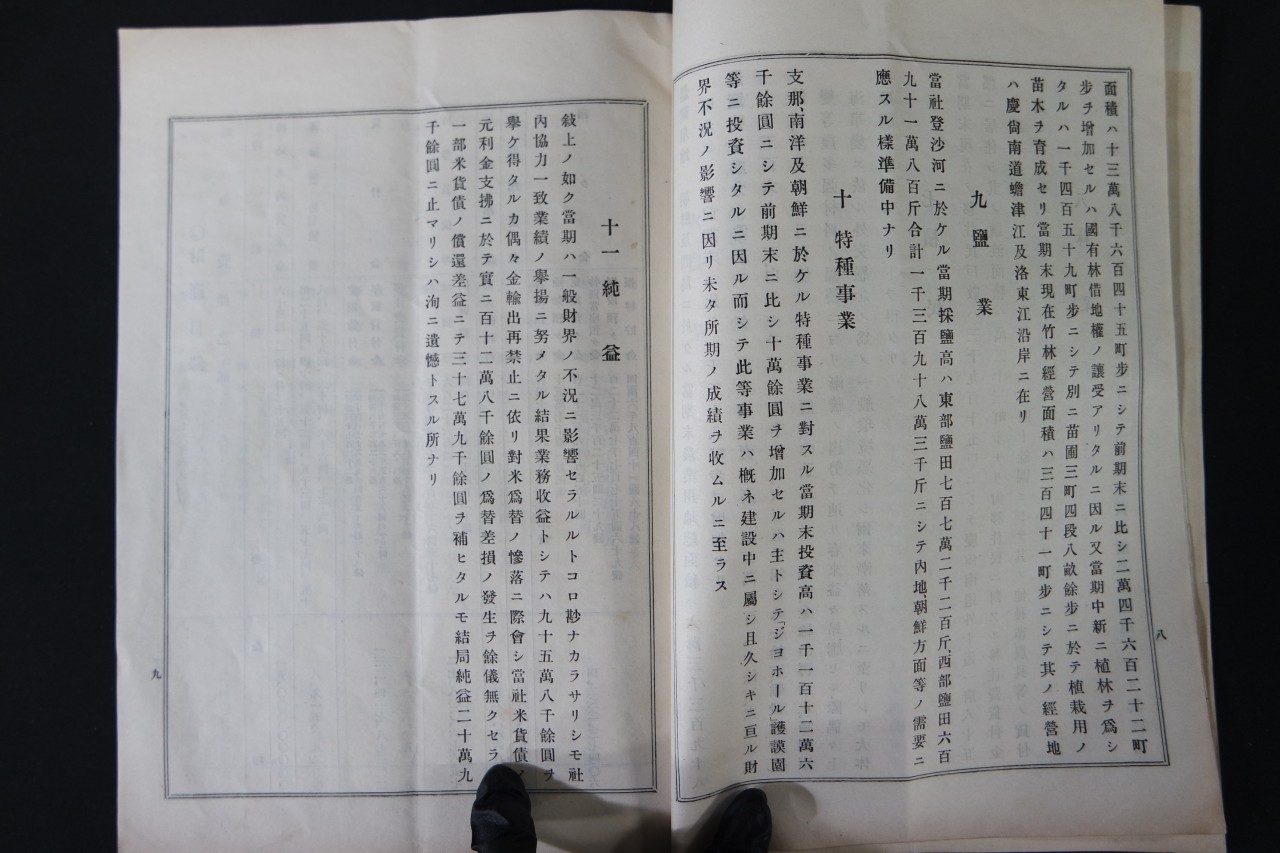 面積ハ十三萬八千六百四十五町步ニシテ前期末ニ比シ二萬四千六百二十二町
步ヲ增加セルハ國有林借地權ノ讓受アリタルニ因ル又當期中新ニ植林ヲ爲シ
タルハ一千四百五十九町步ニシテ別ニ苗圃三町四段八畝餘步ニ於テ植栽用ノ
苗木ヲ育成セリ當期末現在竹林經營面積ハ三百四十一町步ニシテ其ノ經營地
ハ慶尙南道蟾津江及洛東江沿岸ニ在リ
九 鹽業
當社登沙河ニ於ケル當期採鹽高ハ東部鹽田七百七萬二千二百斤、西部鹽田六百
九十一萬八百斤合計一千三百九十八萬三千斤ニシテ內地、朝鮮方面等ノ需要ニ
應スル樣準備中ナリ
十 特種事業
支那、南洋及朝鮮ニ於ケル特種事業ニ對スル當期末投資高ハ一千一百十二萬六
千餘圓ニシテ前期末ニ比シ十萬餘圓ヲ增加セルハ主トシテ「ジヨホール」護謨園
等ニ投資シタルニ因ル而シテ此等事業ハ槪ネ建設中ニ屬シ且久シキニ亘ル財
界不況ノ影響ニ因リ未タ所期ノ成績ヲ收ムルニ至ラス
八
十一 純益
敍上ノ如ク當期ハ一般財界ノ不況ニ影響セラルルトコロ尠ナカラサリシモ社
內協力一致業績ノ擧揚ニ努メタル結果業務收益トシテハ九十五萬八千餘圓ヲ
擧ケ得タルカ偶々金輸出再禁止ニ依リ對米爲替ノ慘落ニ際會シ當社米貨債ノ
元利金支拂ニ於テ實ニ百十二萬八千餘圓ノ爲替差損ノ發生ヲ餘儀無クセラ
一部米貨債ノ償還差益ニテ三十七萬九千餘圓ヲ補ヒタルモ結局純益二十萬九
千餘圓ニ止マリシハ洵ニ遺憾トスル所ナリ
九